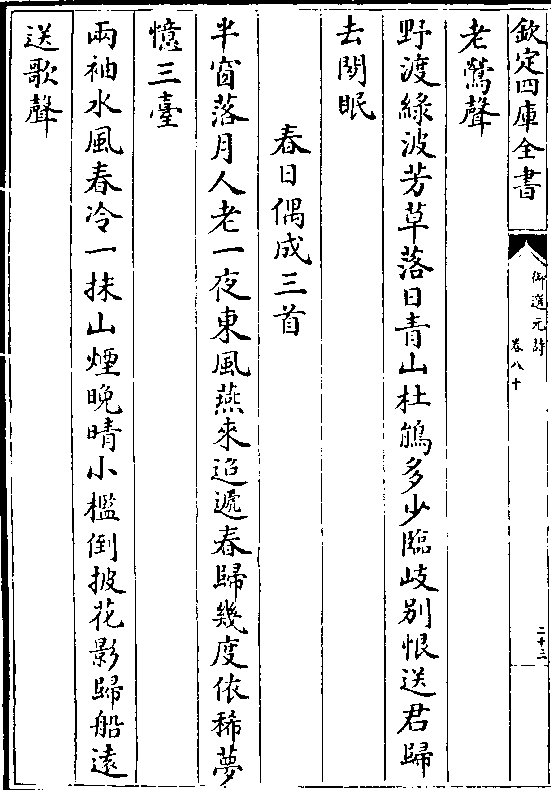 欽定四庫全書
御選元詩
卷八十
二十三
老鶯聲
野渡綠波芳草落日青山杜鵑多少臨岐别恨送君歸
去閉眠
春日偶成三首
半窗落月人老一夜東風燕來迢遞春歸幾度依稀夢
憶三臺
兩袖水風春冷一抹山煙晚晴小檻倒披花影歸船遠
送歌聲